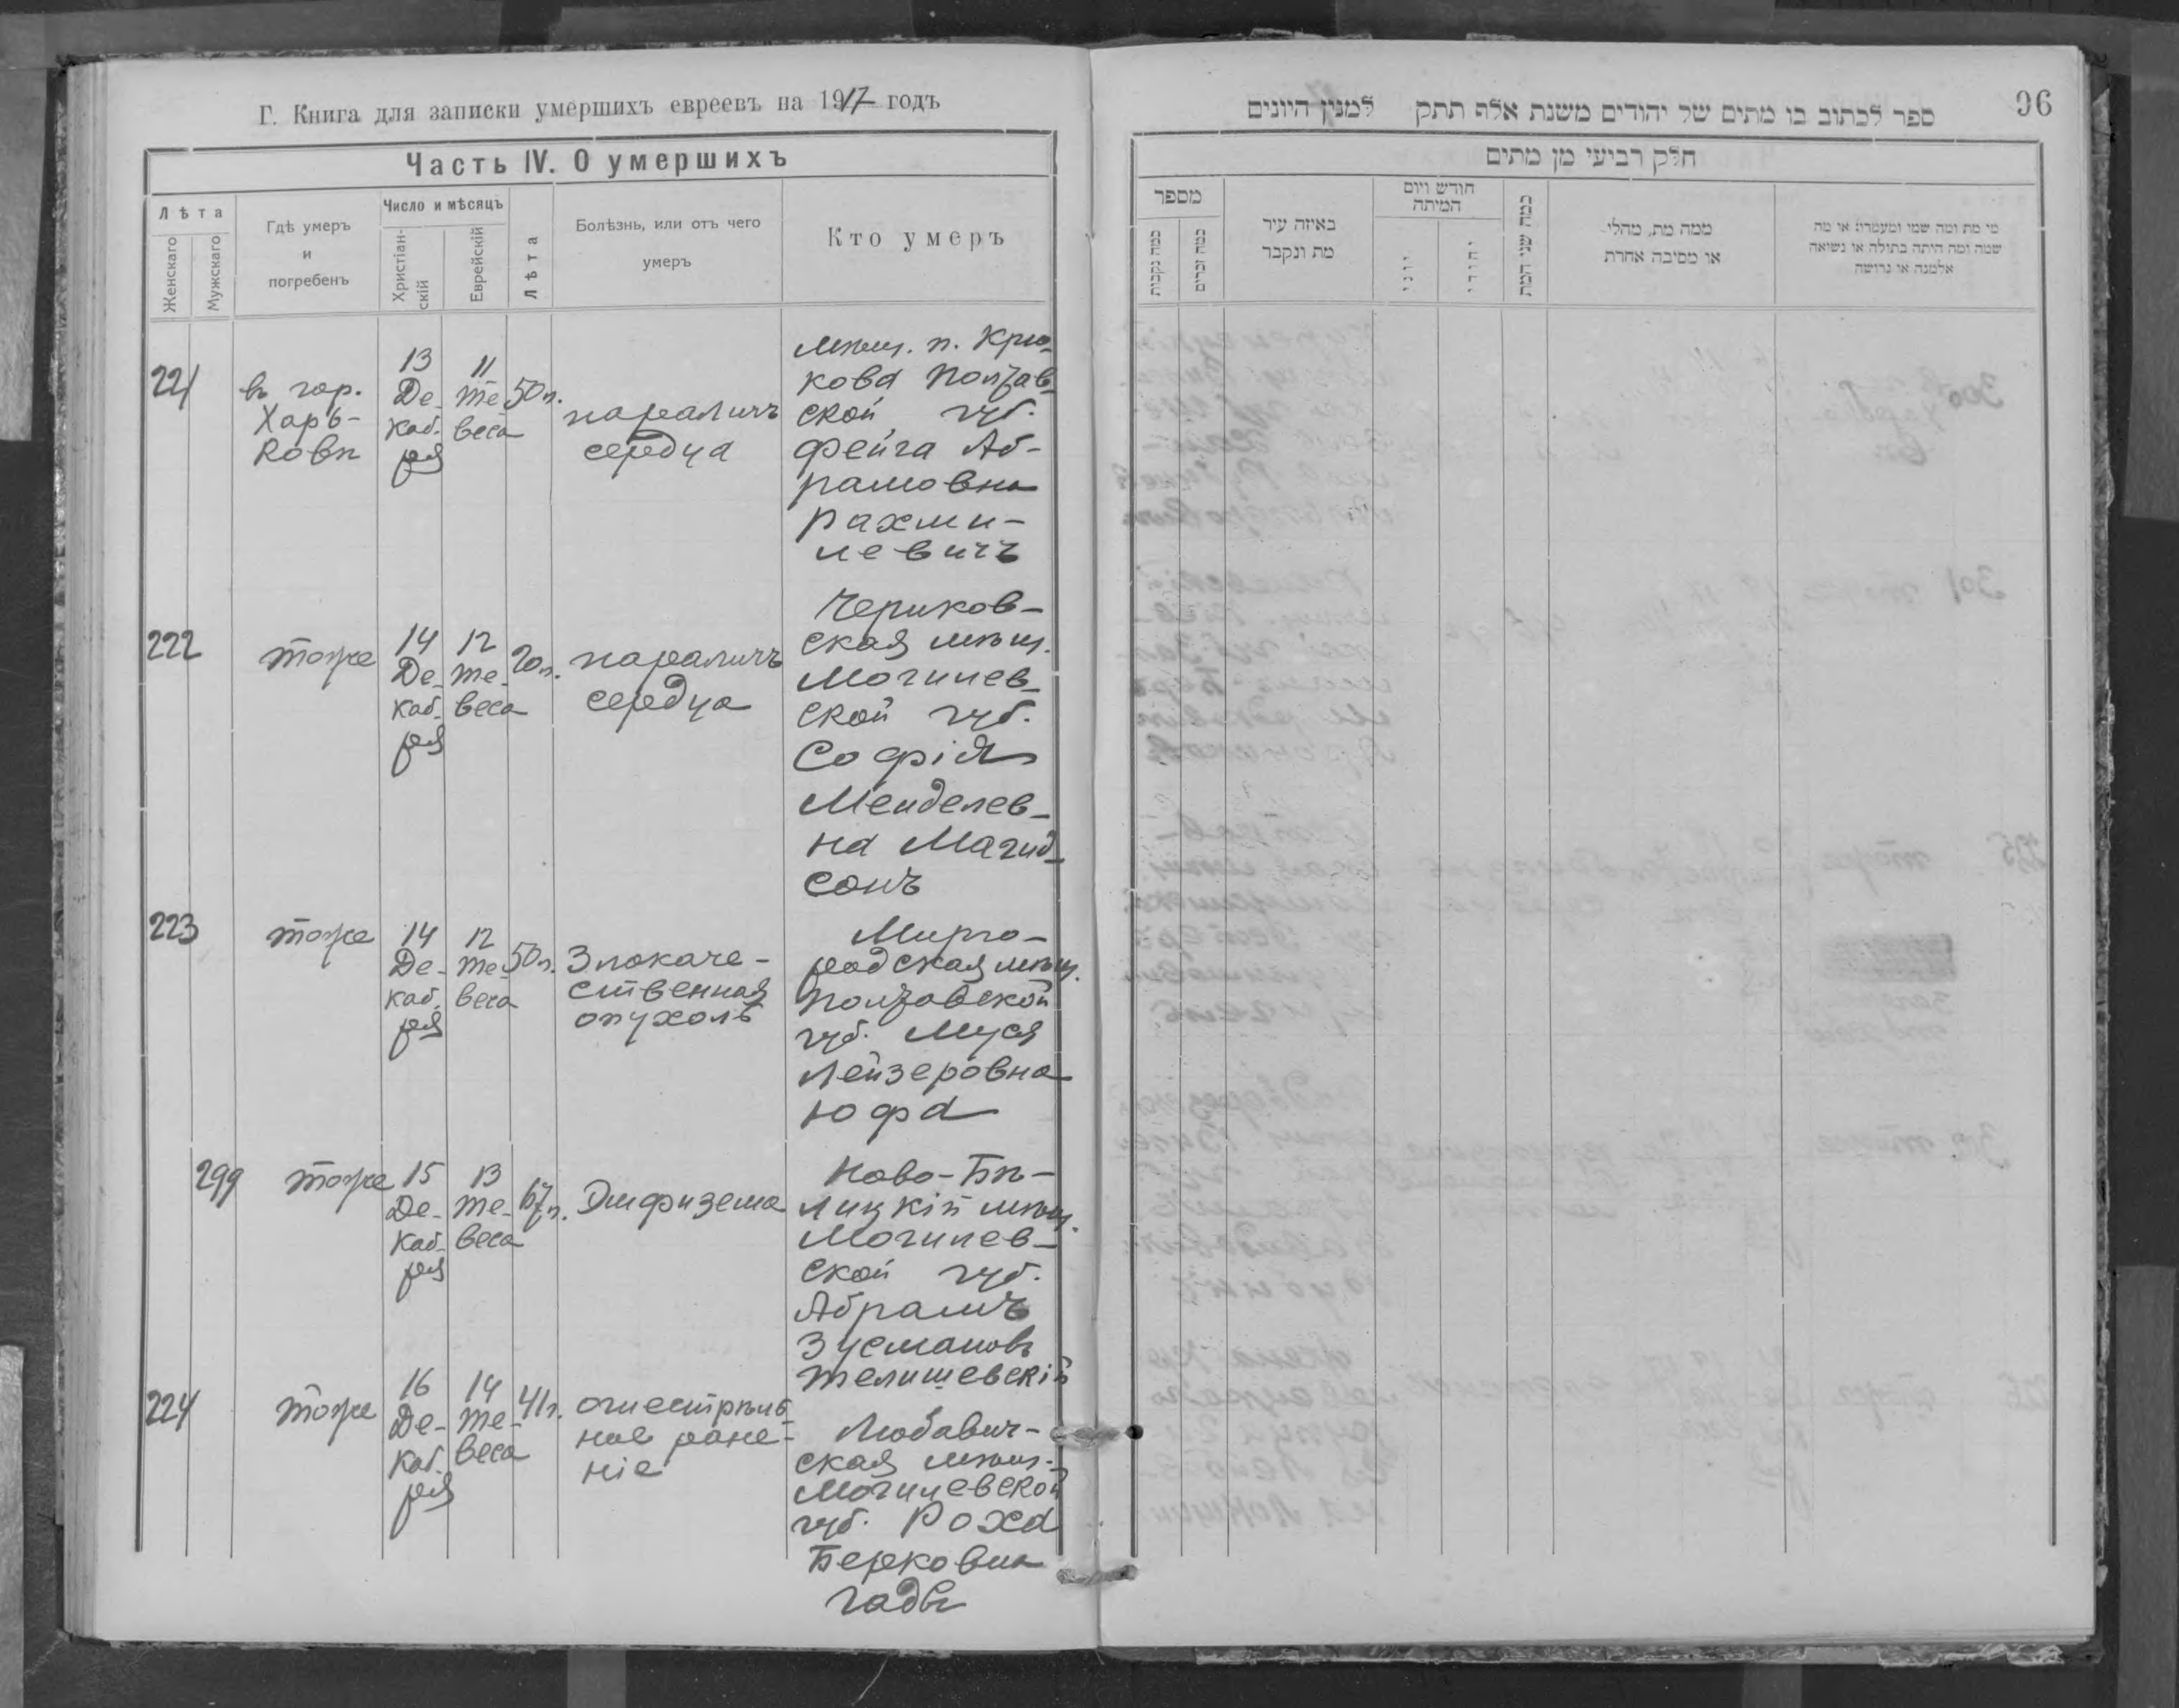 Г. Книга для записки умершихъ евреевъ на 1917 годъ
Часть IV. О умершихъ
Лѣта
Женскаго
Мужскаго
Гдѣ умеръ
и
погребенъ
Число и мѣсяцъ
Христіан-
скій
Еврейскій
Лѣта
Болѣзнь, или отъ чего
умеръ
Кто умеръ
221
въ гор.
Харь-
ковѣ
13
Де-
каб-
ря
11
Те-
веса
50 л.
параличъ
сердца
мѣщ. п. Крю-
кова Полтав-
ской губ.
Фейга Аб-
рамовна
Рахми-
левичъ
222
тоже
14
Де-
каб-
ря
12
Те-
веса
20 л.
параличъ
сердца
Чериков-
ская мѣщ.
Могилев-
ской губ.
Софія
Менделев-
на Магид-
сонъ
223
тоже
14
Де-
каб-
ря
12
Те-
веса
50 л.
Злокаче-
ственная
опухоль
Мирго-
родская мѣщ.
Полтавской
губ. Муся
Лейзеровна
Юфа
299
тоже
15
Де-
каб-
ря
13
Те-
веса
67 л.
Эмфизема
Ново-Бѣ-
лицкій мѣщ.
Могилев-
ской губ.
Абрамъ
Зусмановъ
Телишевскій
224
тоже
16
Де-
каб-
ря
14
Те-
веса
41 г.
огнестрѣль-
ное ране-
ніе
Любавич-
ская мѣщ.
Могилевской
губ. Роха
Берковна
Гадъ
96
ספר לכתוב בו מתים של יהודים משנת אלף תתק למנין היונים
חלק רביעי מן מתים
מספר
כמה נקבות
כמה זכרים
באיזה עיר
מת ונקבר
חודש ויום
המיתה
יוני
יהודי
כמה שני המת
ממה מת, מחלי
או מסיבה אחרת
מי מת ומה שמו ומעמדו או מה
שמה ומה היתה בתולה או נשואה
אלמנה או גרושה